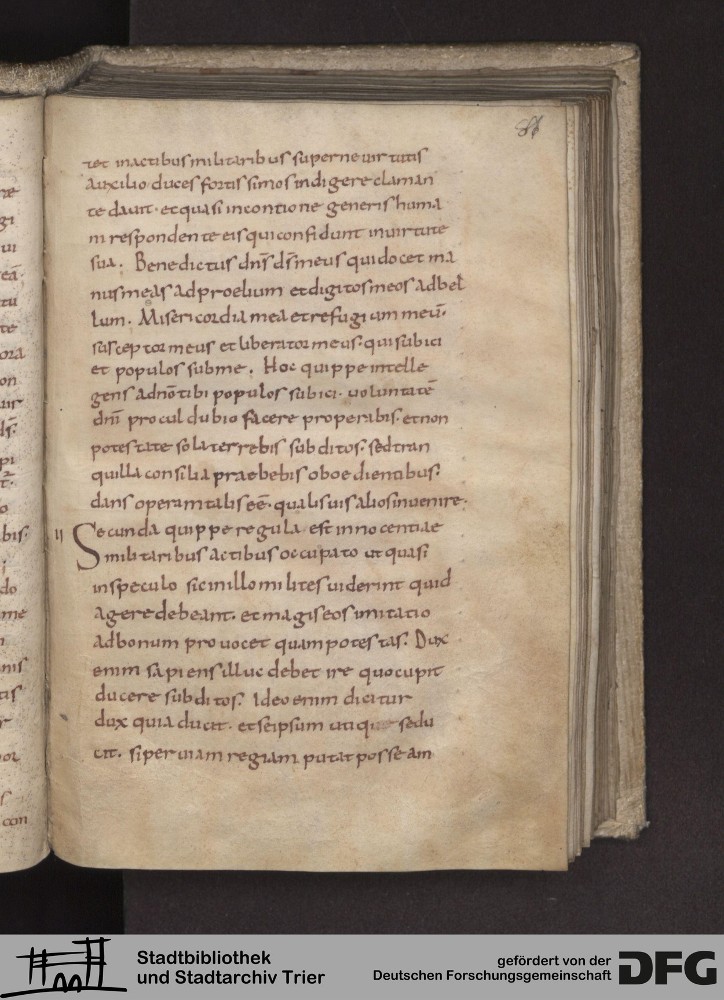 86
tet inactibus militaribus superne uirtutis
auxilio duces fortissimos indigere claman
te dauit· et quasi incontione generis huma
ni respondente eis qui confidunt inuirtute
sua. Benedictus dn̄s ds̄ meus qui docet ma
nus meas adproelium et digitos meos adbel
lum. Misericordia mea et refugium meū·
susceptor meus et liberator meus· qui subici
et populos subme. Hoc quippe intelle
gens adnō tibi populos subici· uoluntatē
dnī procul dubio facere properabis· et non
potestate sola terrebis subditos· sed tran
quilla consilia praebebis oboedientibus·
dans operam talis eē· qualis uis alios inuenire·
II Secunda quippe regula est innocentiae
militaribus actibus occupato ut quasi
inspeculo sic inillo milites uiderint quid
agere debeant· et magis eos imitatio
adbonum prouocet quam potestas. Dux
enim sapiens illuc debet ire quo cupit
ducere subditos. Ideo enim dicitur
dux quia ducit· et seipsum utique sedu
cit. si per uiam regiam putat posse am
Stadtbibliothek
und Stadtarchiv Trier
gefördert von der
Deutschen Forschungsgemeinschaft
DFG